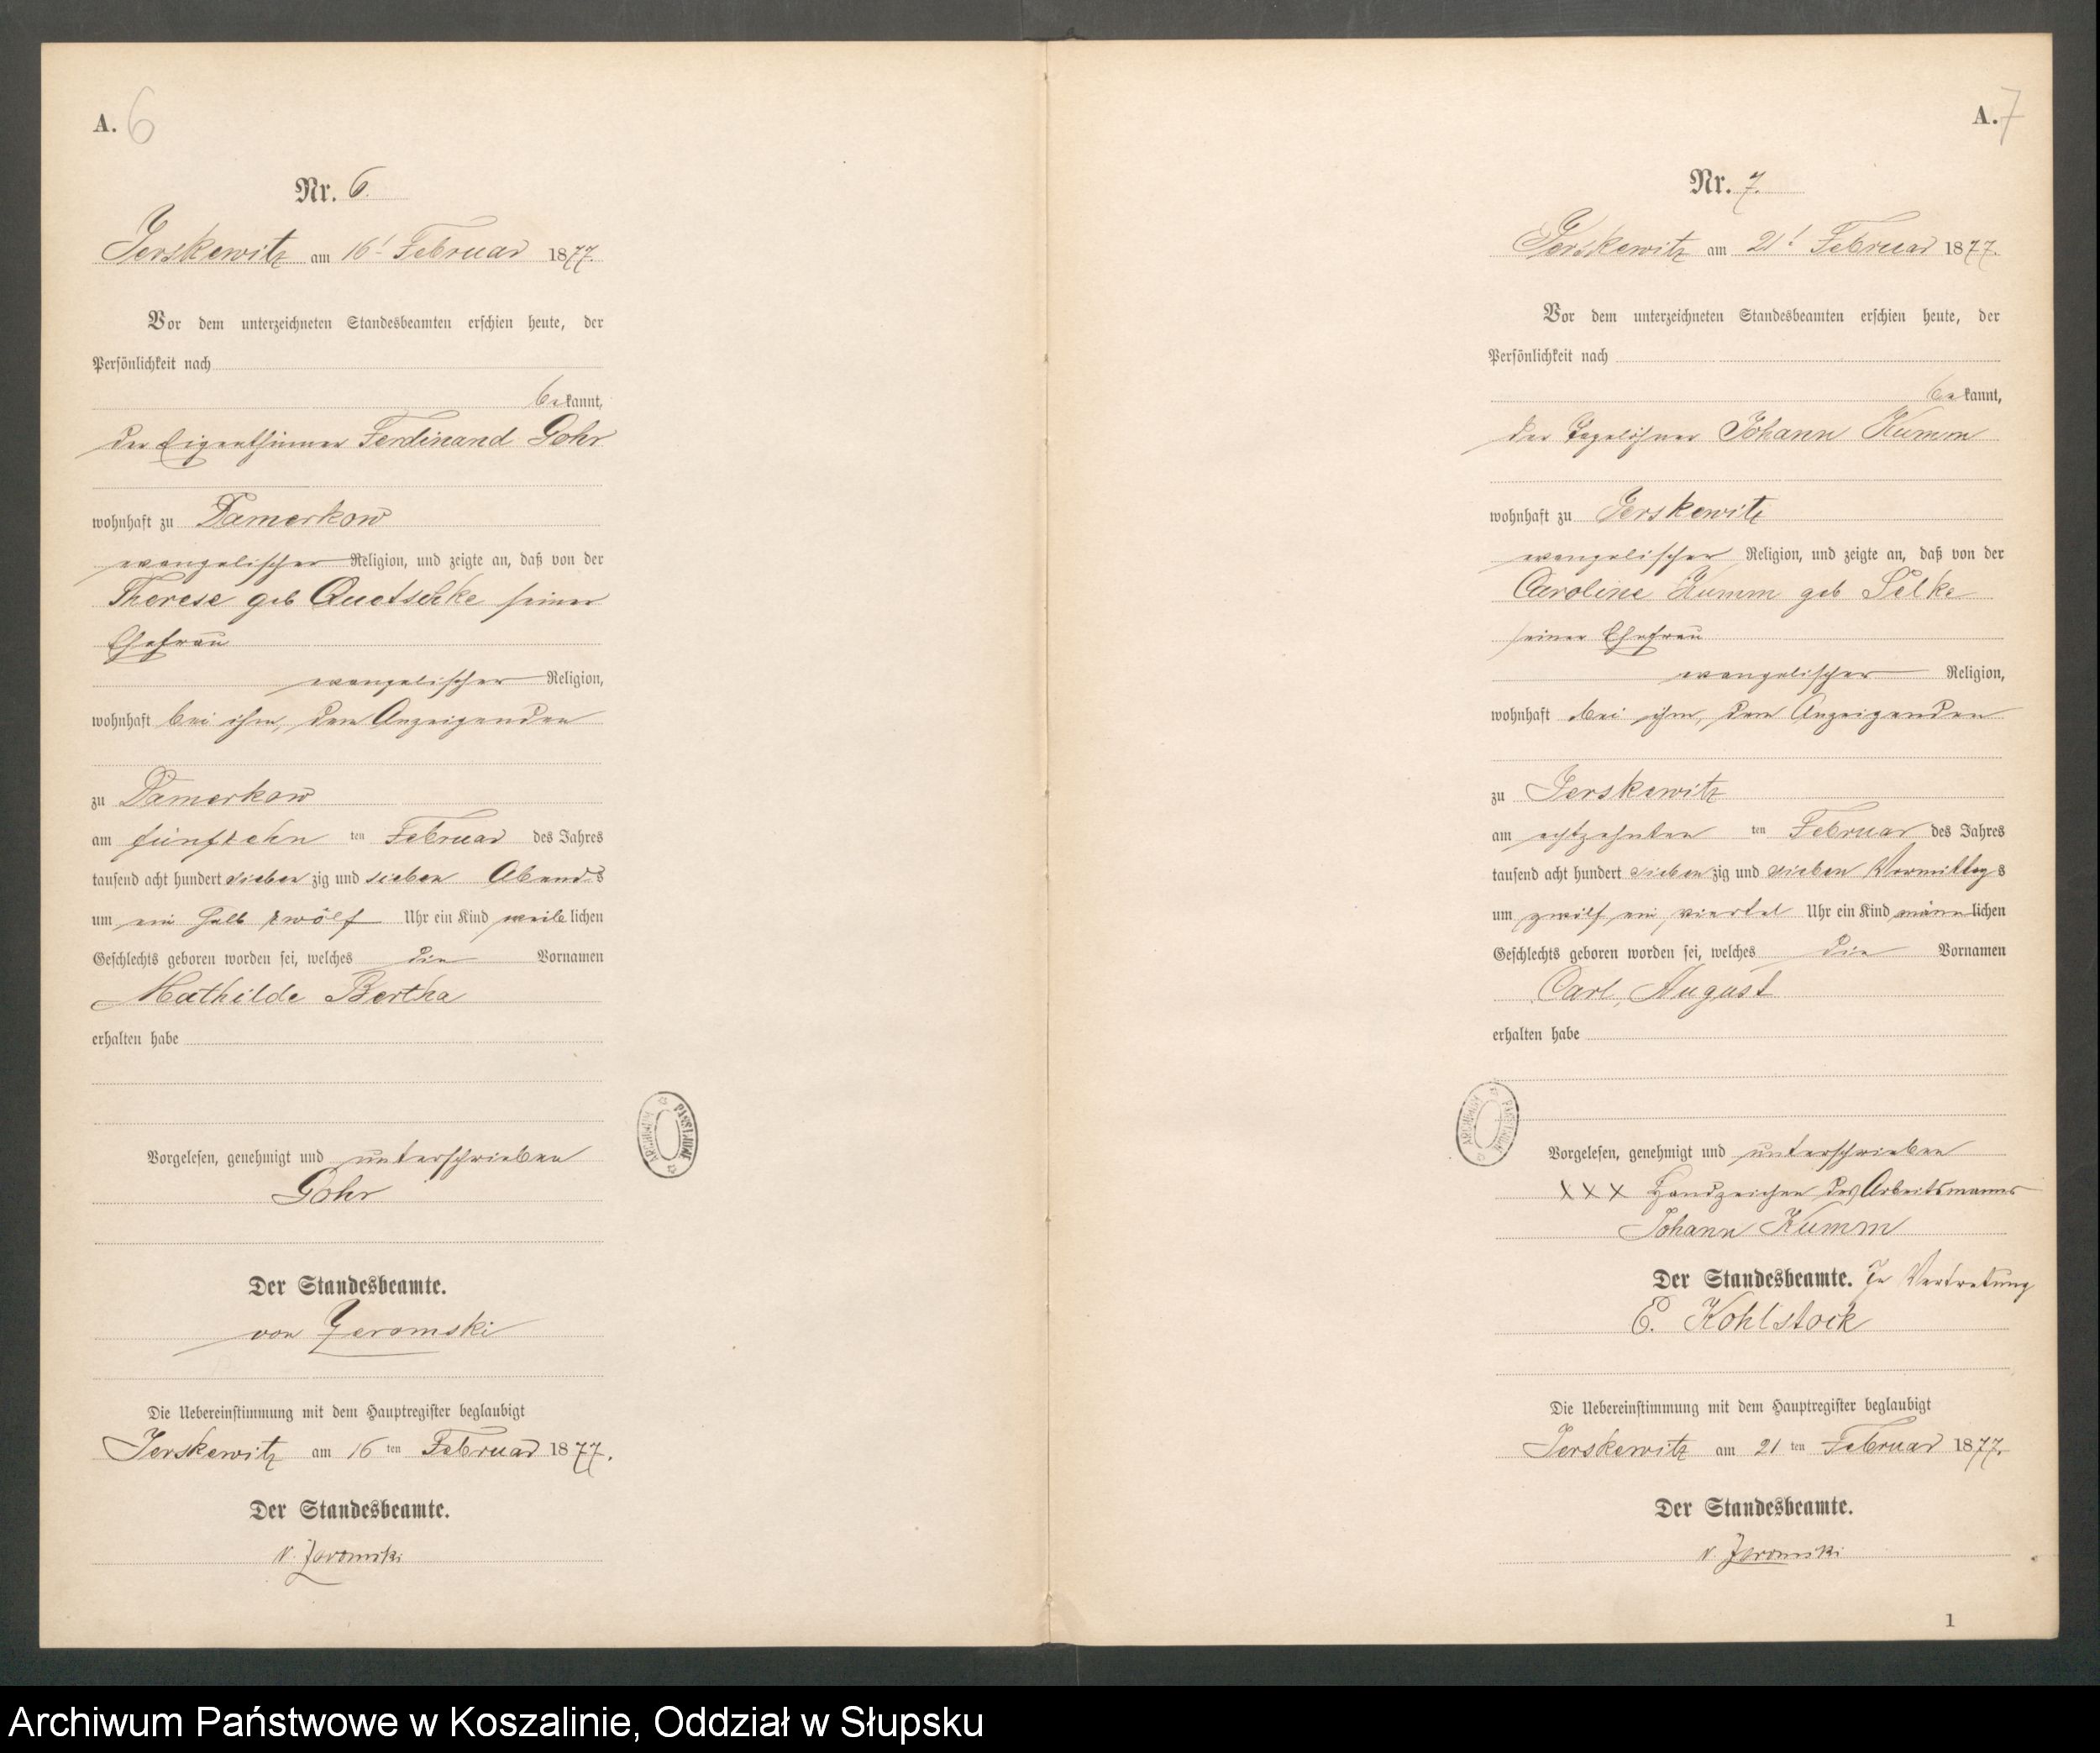 A. 6
Nr. 6.
Jerskewitz am 16t Februar 1877.
Vor dem unterzeichneten Standesbeamten erschien heute, der
Persönlichkeit nach
bekannt,
der Eigenthümer Ferdinand Gohr
wohnhaft zu Damerkow
evangelischer Religion, und zeigte an, daß von der
Therese geb Quetschke seiner
Ehefrau
evangelischer Religion,
wohnhaft bei ihm, dem Anzeigenden
zu Damerkow
am fünfzehn ten Februar des Jahres
tausend acht hundert sieben zig und sieben Abends
um ein halb zwölf Uhr ein Kind weib lichen
Geschlechts geboren worden sei, welches die Vornamen
Mathilde Bertha
erhalten habe
Vorgelesen, genehmigt und unterschrieben
Gohr
Der Standesbeamte.
von Zeromski
Die Uebereinstimmung mit dem Hauptregister beglaubigt
Jerskewitz am 16 ten Februar 1877.
Der Standesbeamte.
v. Zeromski
ARCHIWUM PAŃSTWOWE
A. 7
Nr. 7.
Jerskewitz am 21t Februar 1877.
Vor dem unterzeichneten Standesbeamten erschien heute, der
Persönlichkeit nach
bekannt,
der Tagelöhner Johann Kumm
wohnhaft zu Jerskewitz
evangelischer Religion, und zeigte an, daß von der
Caroline Kumm geb Selke
seiner Ehefrau
evangelischer Religion,
wohnhaft bei ihm, dem Anzeigenden
zu Jerskewitz
am achtzehnten ten Februar des Jahres
tausend acht hundert sieben zig und sieben Vormittags
um zwölf ein viertel Uhr ein Kind männ lichen
Geschlechts geboren worden sei, welches die Vornamen
Carl, August
erhalten habe
Vorgelesen, genehmigt und unterschrieben
XXX Handzeichen des Arbeitsmanns
Johann Kumm
Der Standesbeamte. In Vertretung
E. Kohlstock
Die Uebereinstimmung mit dem Hauptregister beglaubigt
Jerskewitz am 21 ten Februar 1877.
Der Standesbeamte.
v. Zeromski
1
Archiwum Państwowe w Koszalinie, Oddział w Słupsku